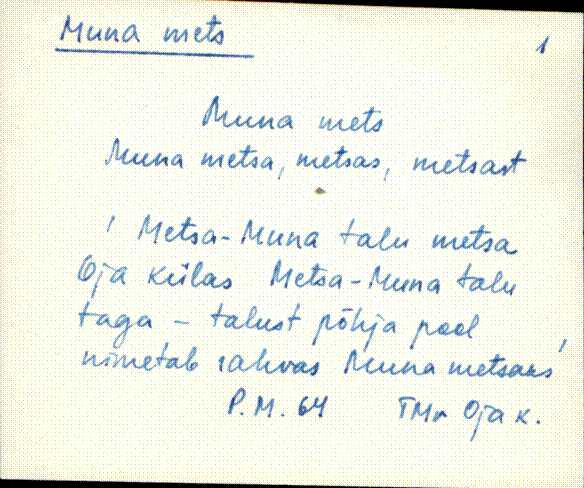 Muna mets
1
Muna mets
Muna metsa, metsas, metsast
' Metsa-Muna talu metsa
Oja külas Metsa-Muna talu
taga – talust põhja pool
nimetab rahvas Muna metsaks'
P.M. 64 TMr Oja k.